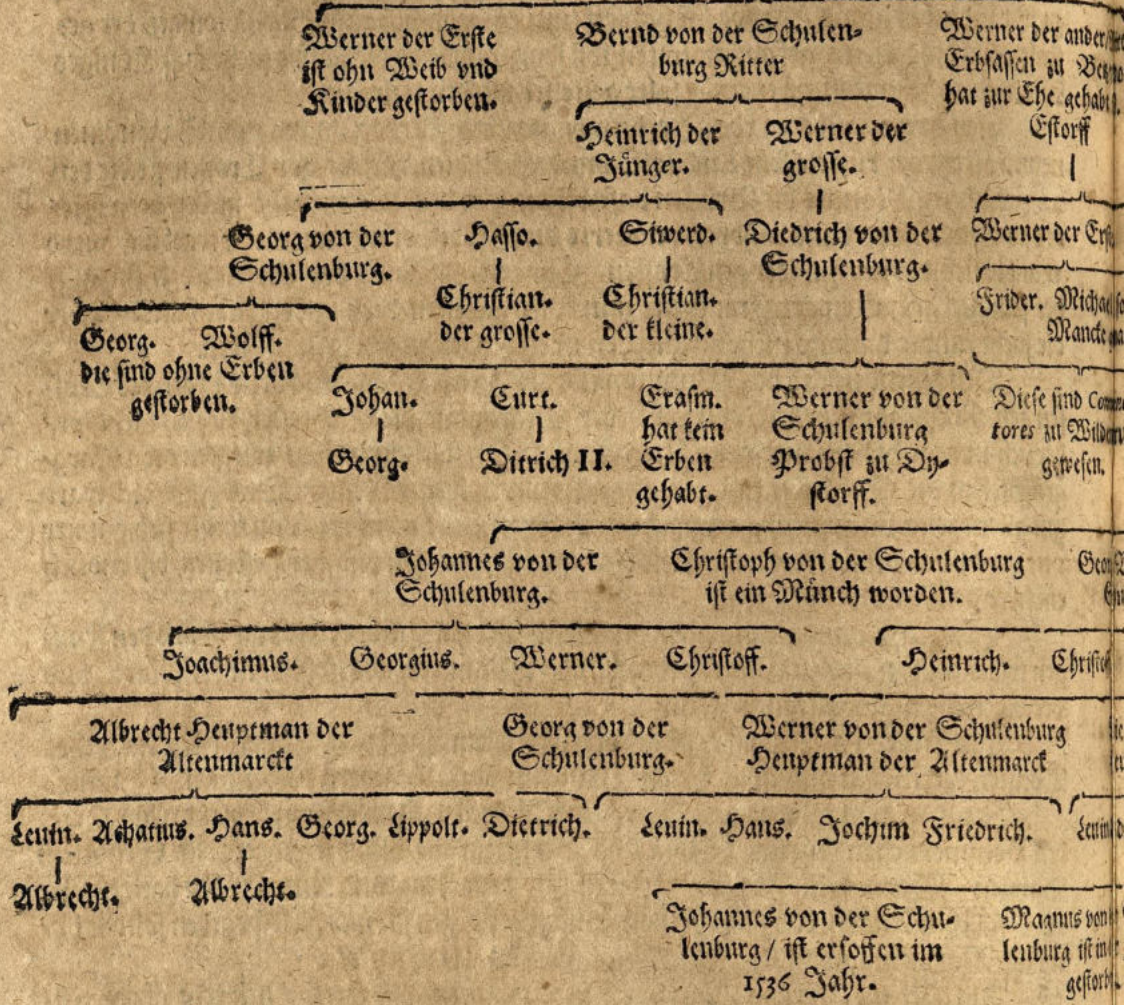 Werner der Erste
ist ohn Weib vnd
Kinder gestorben.
Bernd von der Schulen-
burg Ritter
Werner der ander
Erbsassen zu
hat zur Ehe
Estorff
Heinrich der
Jünger.
Werner der
grosse.
Georg von der
Schulenburg.
Hasso.
Siwerd.
Diedrich von der
Schulenburg.
Werner der
Christian.
der grosse.
Christian.
der kleine.
Frider.
Georg. Wolff.
die sind ohne Erben
gestorben.
Johan.
Curt.
Erasm.
hat kein
Erben
gehabt.
Werner von der
Schulenburg
Probst zu Dy-
storff.
Diese sind
tores zu
gewesen.
Georg.
Ditrich II.
Johannes von der
Schulenburg.
Christoph von der Schulenburg
ist ein Münch worden.
Joachimus. Georgius. Werner. Christoff.
Heinrich.
Albrecht Heuptman der
Altenmarckt
Georg von der
Schulenburg.
Werner von der Schulenburg
Heuptman der Altenmarck
Leuin. Achatius. Hans. Georg. Lippolt. Dietrich.
Leuin. Hans. Jochim Friedrich.
Albrecht.
Albrecht.
Johannes von der Schu-
lenburg / ist ersoffen im
1536 Jahr.
Magnus von
lenburg ist